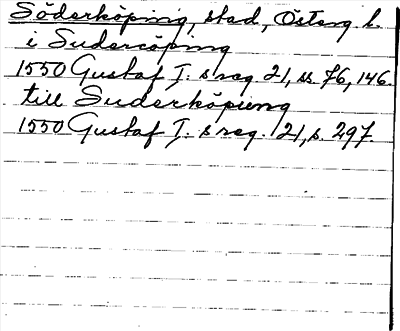 Söderköping, stad, Österg l.
i Sudercöping
1550 Gustaf I. s reg. 21, ss. 76, 146.
till Suderköpung
1550 Gustaf I. s reg. 21, s. 297.